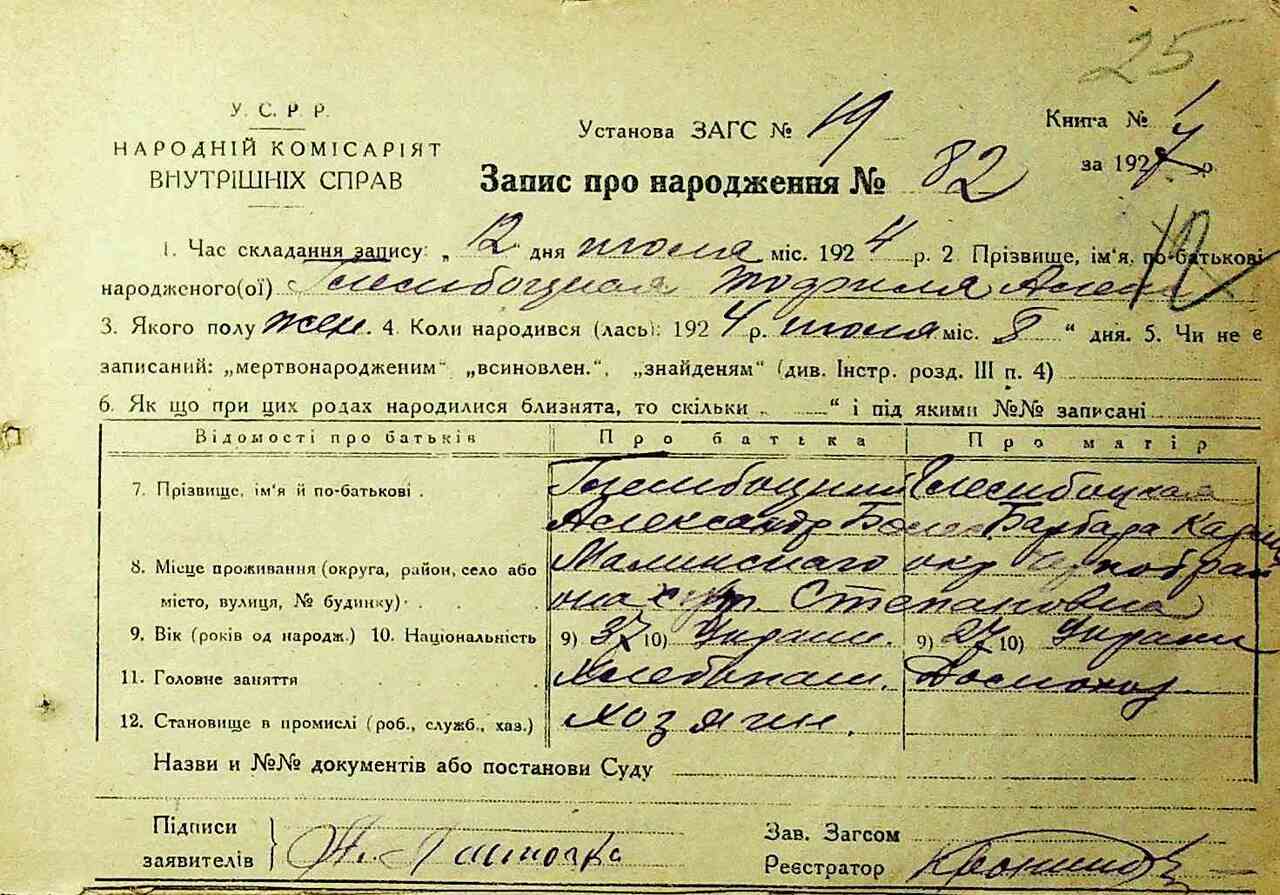 25
У. С. Р. Р.
НАРОДНІЙ КОМІСАРІЯТ
ВНУТРІШНІХ СПРАВ
Установа ЗАГС № 19
Книга № 1
за 1924 р.
Запис про народження № 82
1. Час складання запису: „ 12 " дня июля міс. 1924 р. 2 Прізвище, ім'я, по-батькові
народженого(ої)
3. Якого полу жен. 4. Коли народився (лась): 1924 р. июля міс. „ 8 “ дня. 5. Чи не є
записаний: „мертвонародженим“ „всиновлен.“, „знайденям“ (див. Інстр. розд. III п. 4)
6. Як що при цих родах народилися близнята, то скільки „ “ і під якими №№ записані
Відомості про батьків Про батька Про матір
7. Прізвище, ім'я й по-батькові .
Александр Варвара
8. Місце проживання (округа, район, село або
Малинскаго окр
місто, вулиця, № будинку) · Степановка
9. Вік (років од народж.) 10. Національність 9) 37 10) Украин. 9) 27 10) Украин
11. Головне заняття Хлебопаш. Домохоз.
12. Становище в промислі (роб., служб., хаз.) Хозяин.
Назви и №№ документів або постанови Суду
Підписи
заявителів
Зав. Загсом
Реєстратор